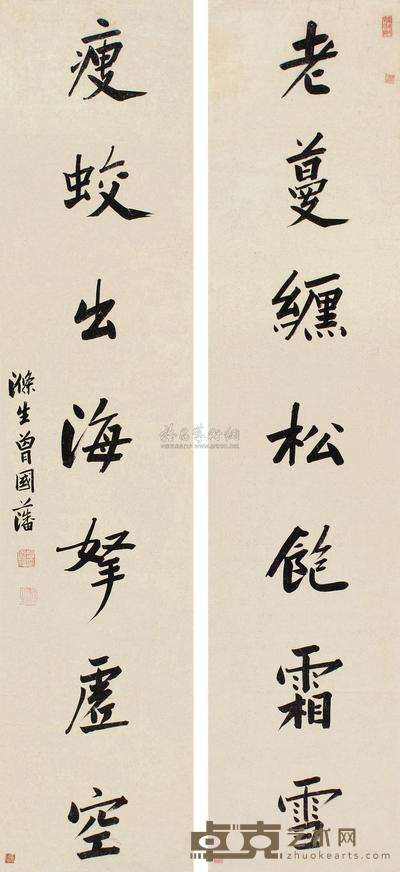 老蔓纏松飽霜雪
瘦蛟出海拏虛空
滌生曾國藩
卓克艺术网
www.zhuokearts.com